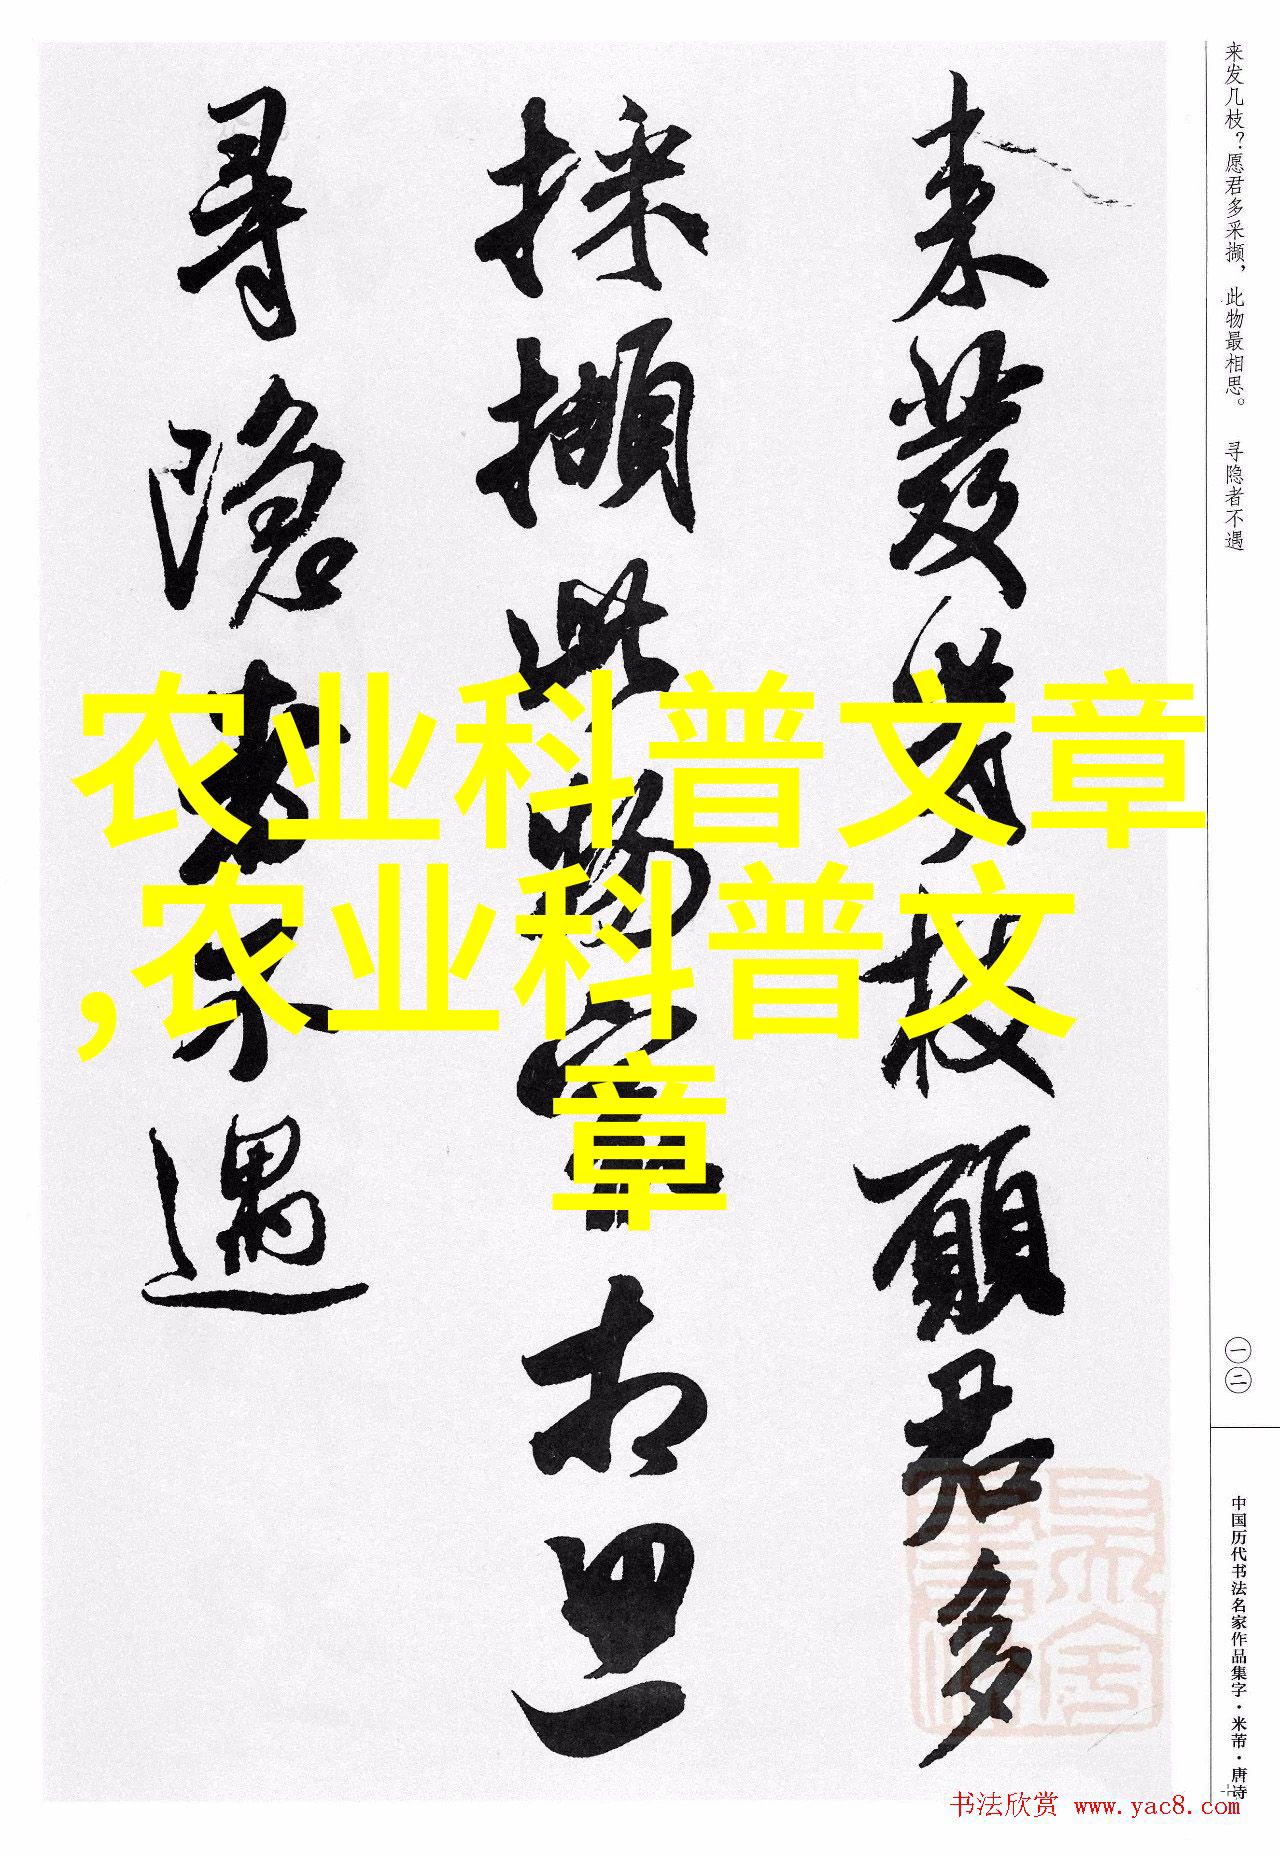 来发几枝？愿君多采撷，此物最相思。 寻隐者不遇
來發幾枝願君多
採擷此物最相思
尋隱者不遇
农业科普文章
,农业科普文
章
一二
中国历代书法名家作品集字·米芾·唐诗
书法欣赏 www.yac8.com